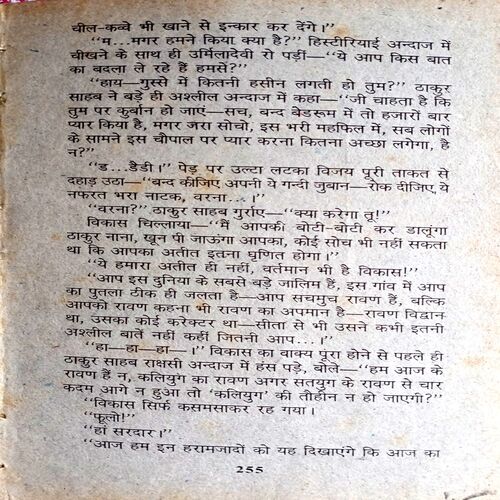 चील-कव्वे भी खाने से इन्कार कर देंगे।”
“म...मगर हमने किया क्या है?” हिस्टीरियाई अन्दाज में
चीखने के साथ ही उर्मिलादेवी रो पड़ीं—“ये आप किस बात
का बदला ले रहे हैं हमसे?”
“हाय—गुस्से में कितनी हसीन लगती हो तुम?” ठाकुर
साहब ने बड़े ही अश्लील अन्दाज में कहा—“जी चाहता है कि
तुम पर कुर्बान हो जाएं—सच, बन्द बैडरूम में तो हजारों बार
प्यार किया है, मगर जरा सोचो, इस भरी महफिल में, सब लोगों
के सामने इस चौपाल पर प्यार करना कितना अच्छा लगेगा, है
न?”
“ड...डैडी।” पेड़ पर उल्टा लटका विजय पूरी ताकत से
दहाड़ उठा—“बन्द कीजिए अपनी ये गन्दी जुबान—रोक दीजिए ये
नफरत भरा नाटक, वरना...।”
“वरना?” ठाकुर साहब गुर्राए—“क्या करेगा तू!”
विकास चिल्लाया—“मैं आपकी बोटी-बोटी कर डालूंगा
ठाकुर नाना, खून पी जाऊंगा आपका, कोई सोच भी नहीं सकता
था कि आपका अतीत इतना घृणित होगा।”
“ये हमारा अतीत ही नहीं, वर्तमान भी है विकास!”
“आप इस दुनिया के सबसे बड़े जालिम हैं, इस गांव में आप
का पुतला ठीक ही जलता है—आप सचमुच रावण हैं, बल्कि
आपको रावण कहना भी रावण का अपमान है—रावण विद्वान
था, उसका कोई करेक्टर था—सीता से भी उसने कभी इतनी
अश्लील बातें नहीं कहीं जितनी आप...।”
“हा—हा—हा—।” विकास का वाक्य पूरा होने से पहले ही
ठाकुर साहब राक्षसी अन्दाज में हंस पड़े, बोले—“हम आज के
रावण हैं न, कलियुग का रावण अगर सतयुग के रावण से चार
कदम आगे न हुआ तो ‘कलियुग’ की तौहीन न हो जाएगी?”
“विकास सिर्फ कसमसाकर रह गया।
“फूलो!”
“हां सरदार।”
“आज हम इन हरामजादों को यह दिखाएंगे कि आज का
255